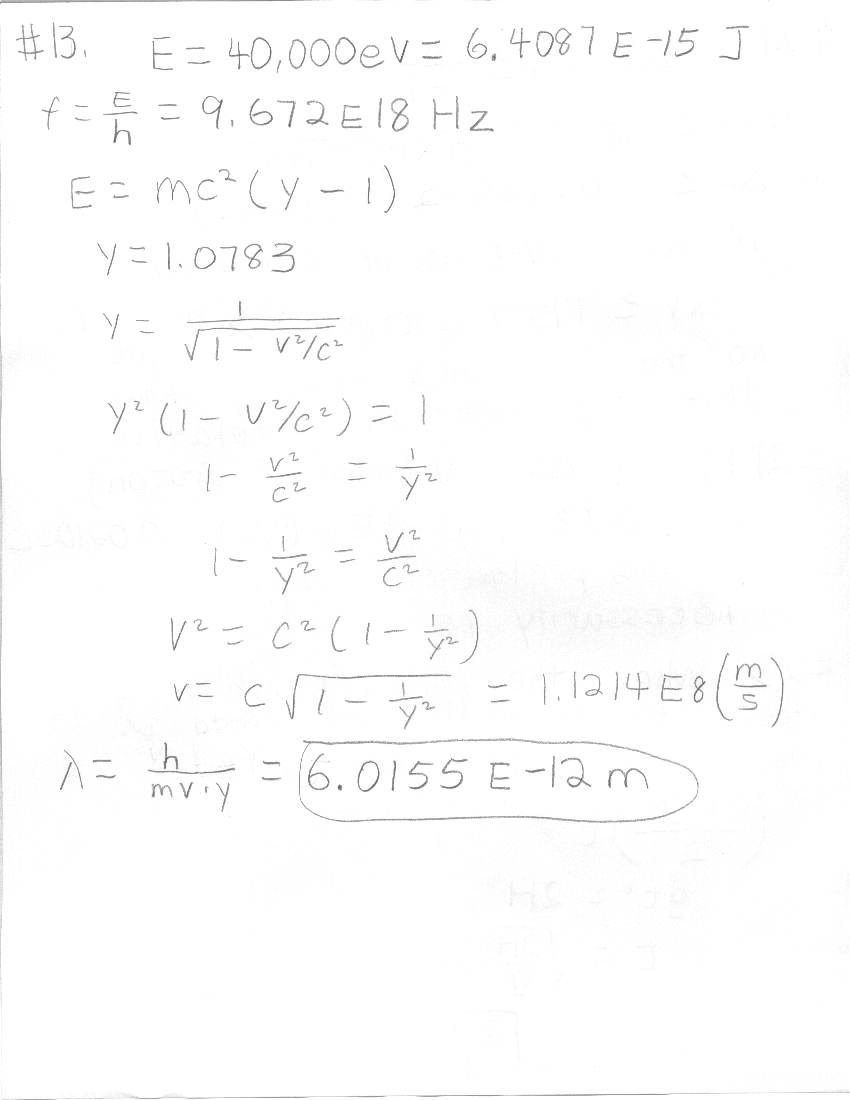 #13. E = 40,000eV = 6.4087 E -15 J
f = E/h = 9.672E18 Hz
E = mc²(γ - 1)
γ = 1.0783
γ = 1/√(1 - V²/c²)
γ²(1 - V²/c²) = 1
1 - v²/c² = 1/γ²
1 - 1/γ² = V²/c²
V² = c²(1 - 1/γ²)
v = c√(1 - 1/γ²) = 1.1214E8 (m/s)
λ = h/(mv·γ) = 6.0155 E -12 m